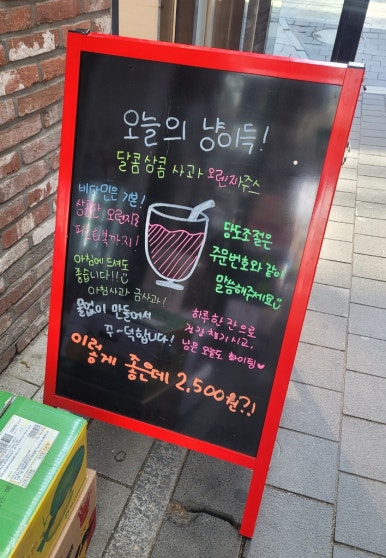 오늘의 냥이득!
달콤상콤 사과 오렌지주스
비타민은 기본!
상큼한 오렌지로
피로회복까지!
아침에 드셔도
좋습니다!!
아침사과 금사과!
물없이 만들어서
꾸-덕합니다!
당도조절은
주문번호와 같이
말씀해주세요
하루한잔으로
건강 챙기시고,
남은 오늘도 화이팅♥
이렇게 좋은데 2,500원?!